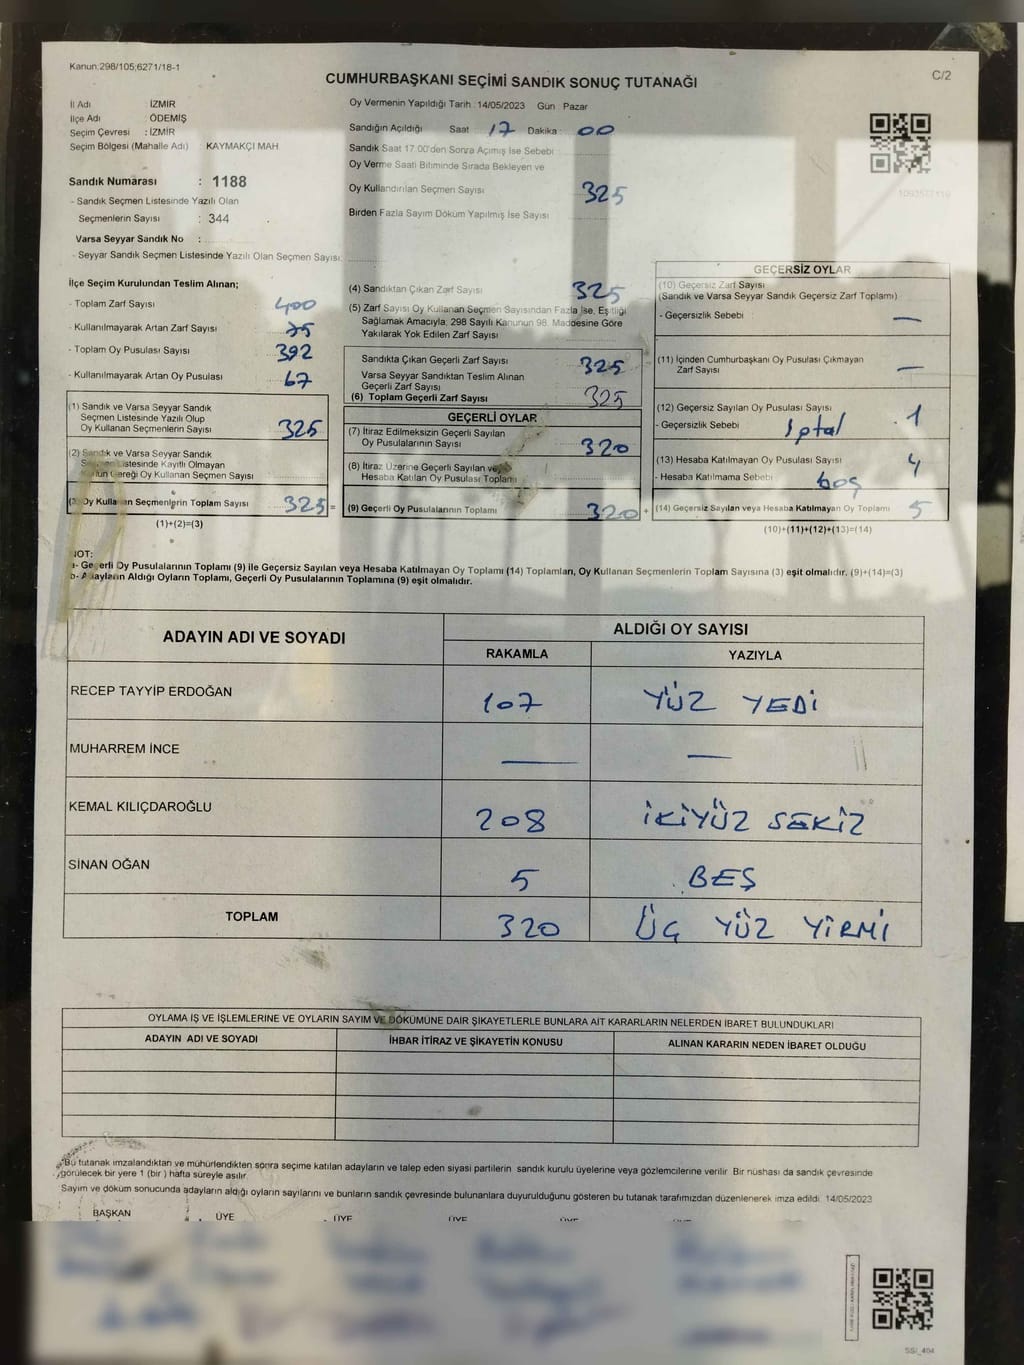 Kanun:298/105;6271/18-1
CUMHURBAŞKANI SEÇİMİ SANDIK SONUÇ TUTANAĞI
C/2
İl Adı : İZMİR
İlçe Adı : ÖDEMİŞ
Seçim Çevresi : İZMİR
Seçim Bölgesi (Mahalle Adı) KAYMAKÇI MAH
Sandık Numarası : 1188
- Sandık Seçmen Listesinde Yazılı Olan
Seçmenlerin Sayısı : 344
Varsa Seyyar Sandık No :
- Seyyar Sandık Seçmen Listesinde Yazılı Olan Seçmen Sayısı:
Oy Vermenin Yapıldığı Tarih : 14/05/2023 Gün Pazar
Sandığın Açıldığı Saat 17 Dakika : 00
Sandık Saat 17.00'den Sonra Açımış İse Sebebi
Oy Verme Saati Bitiminde Sırada Bekleyen ve
Oy Kullandırılan Seçmen Sayısı 325
Birden Fazla Sayım Döküm Yapılmış İse Sayısı
1093577119
İlçe Seçim Kurulundan Teslim Alınan;
- Toplam Zarf Sayısı 400
- Kullanılmayarak Artan Zarf Sayısı 75
- Toplam Oy Pusulası Sayısı 392
- Kullanılmayarak Artan Oy Pusulası 67
(1) Sandık ve Varsa Seyyar Sandık
Seçmen Listesinde Yazılı Olup
Oy Kullanan Seçmenlerin Sayısı 325
(2) Sandık ve Varsa Seyyar Sandık
Seçmen Listesinde Kayıtlı Olmayan
Kanun Gereği Oy Kullanan Seçmen Sayısı
(3) Oy Kullanan Seçmenlerin Toplam Sayısı 325 =
(1)+(2)=(3)
(4) Sandıktan Çıkan Zarf Sayısı 325
(5) Zarf Sayısı Oy Kullanan Seçmen Sayısından Fazla İse, Eşitliği
Sağlamak Amacıyla, 298 Sayılı Kanunun 98. Maddesine Göre
Yakılarak Yok Edilen Zarf Sayısı
Sandıkta Çıkan Geçerli Zarf Sayısı 325
Varsa Seyyar Sandıktan Teslim Alınan
Geçerli Zarf Sayısı
(6) Toplam Geçerli Zarf Sayısı 325
GEÇERLİ OYLAR
(7) İtiraz Edilmeksizin Geçerli Sayılan
Oy Pusulalarının Sayısı 320
(8) İtiraz Üzerine Geçerli Sayılan ve
Hesaba Katılan Oy Pusulası Toplamı
(9) Geçerli Oy Pusulalarının Toplamı 320 +
GEÇERSİZ OYLAR
(10) Geçersiz Zarf Sayısı
(Sandık ve Varsa Seyyar Sandık Geçersiz Zarf Toplamı)
- Geçersizlik Sebebi : —
(11) İçinden Cumhurbaşkanı Oy Pusulası Çıkmayan
Zarf Sayısı —
(12) Geçersiz Sayılan Oy Pusulası Sayısı 1
- Geçersizlik Sebebi İptal
(13) Hesaba Katılmayan Oy Pusulası Sayısı 4
- Hesaba Katılmama Sebebi boş
(14) Geçersiz Sayılan veya Hesaba Katılmayan Oy Toplamı 5
(10)+(11)+(12)+(13)=(14)
NOT:
a- Geçerli Oy Pusulalarının Toplamı (9) ile Geçersiz Sayılan veya Hesaba Katılmayan Oy Toplamı (14) Toplamları, Oy Kullanan Seçmenlerin Toplam Sayısına (3) eşit olmalıdır. (9)+(14)=(3)
b- Adayların Aldığı Oyların Toplamı, Geçerli Oy Pusulalarının Toplamına (9) eşit olmalıdır.
ADAYIN ADI VE SOYADI ALDIĞI OY SAYISI
RAKAMLA YAZIYLA
RECEP TAYYİP ERDOĞAN 107 YÜZ YEDİ
MUHARREM İNCE — —
KEMAL KILIÇDAROĞLU 208 İKİYÜZ SEKİZ
SİNAN OĞAN 5 BEŞ
TOPLAM 320 ÜÇ YÜZ YİRMİ
OYLAMA İŞ VE İŞLEMLERİNE VE OYLARIN SAYIM VE DÖKÜMÜNE DAİR ŞİKAYETLERLE BUNLARA AİT KARARLARIN NELERDEN İBARET BULUNDUKLARI
ADAYIN ADI VE SOYADI İHBAR İTİRAZ VE ŞİKAYETİN KONUSU ALINAN KARARIN NEDEN İBARET OLDUĞU
Bu tutanak imzalandıktan ve mühürlendikten sonra seçime katılan adayların ve talep eden siyasi partilerin sandık kurulu üyelerine veya gözlemcilerine verilir. Bir nüshası da sandık çevresinde
görülecek bir yere 1 (bir) hafta süreyle asılır.
Sayım ve döküm sonucunda adayların aldığı oyların sayılarını ve bunların sandık çevresinde bulunanlara duyurulduğunu gösteren bu tutanak tarafımızdan düzenlenerek imza edildi. 14/05/2023
BAŞKAN ÜYE ÜYE ÜYE ÜYE ÜYE
SSİ_404